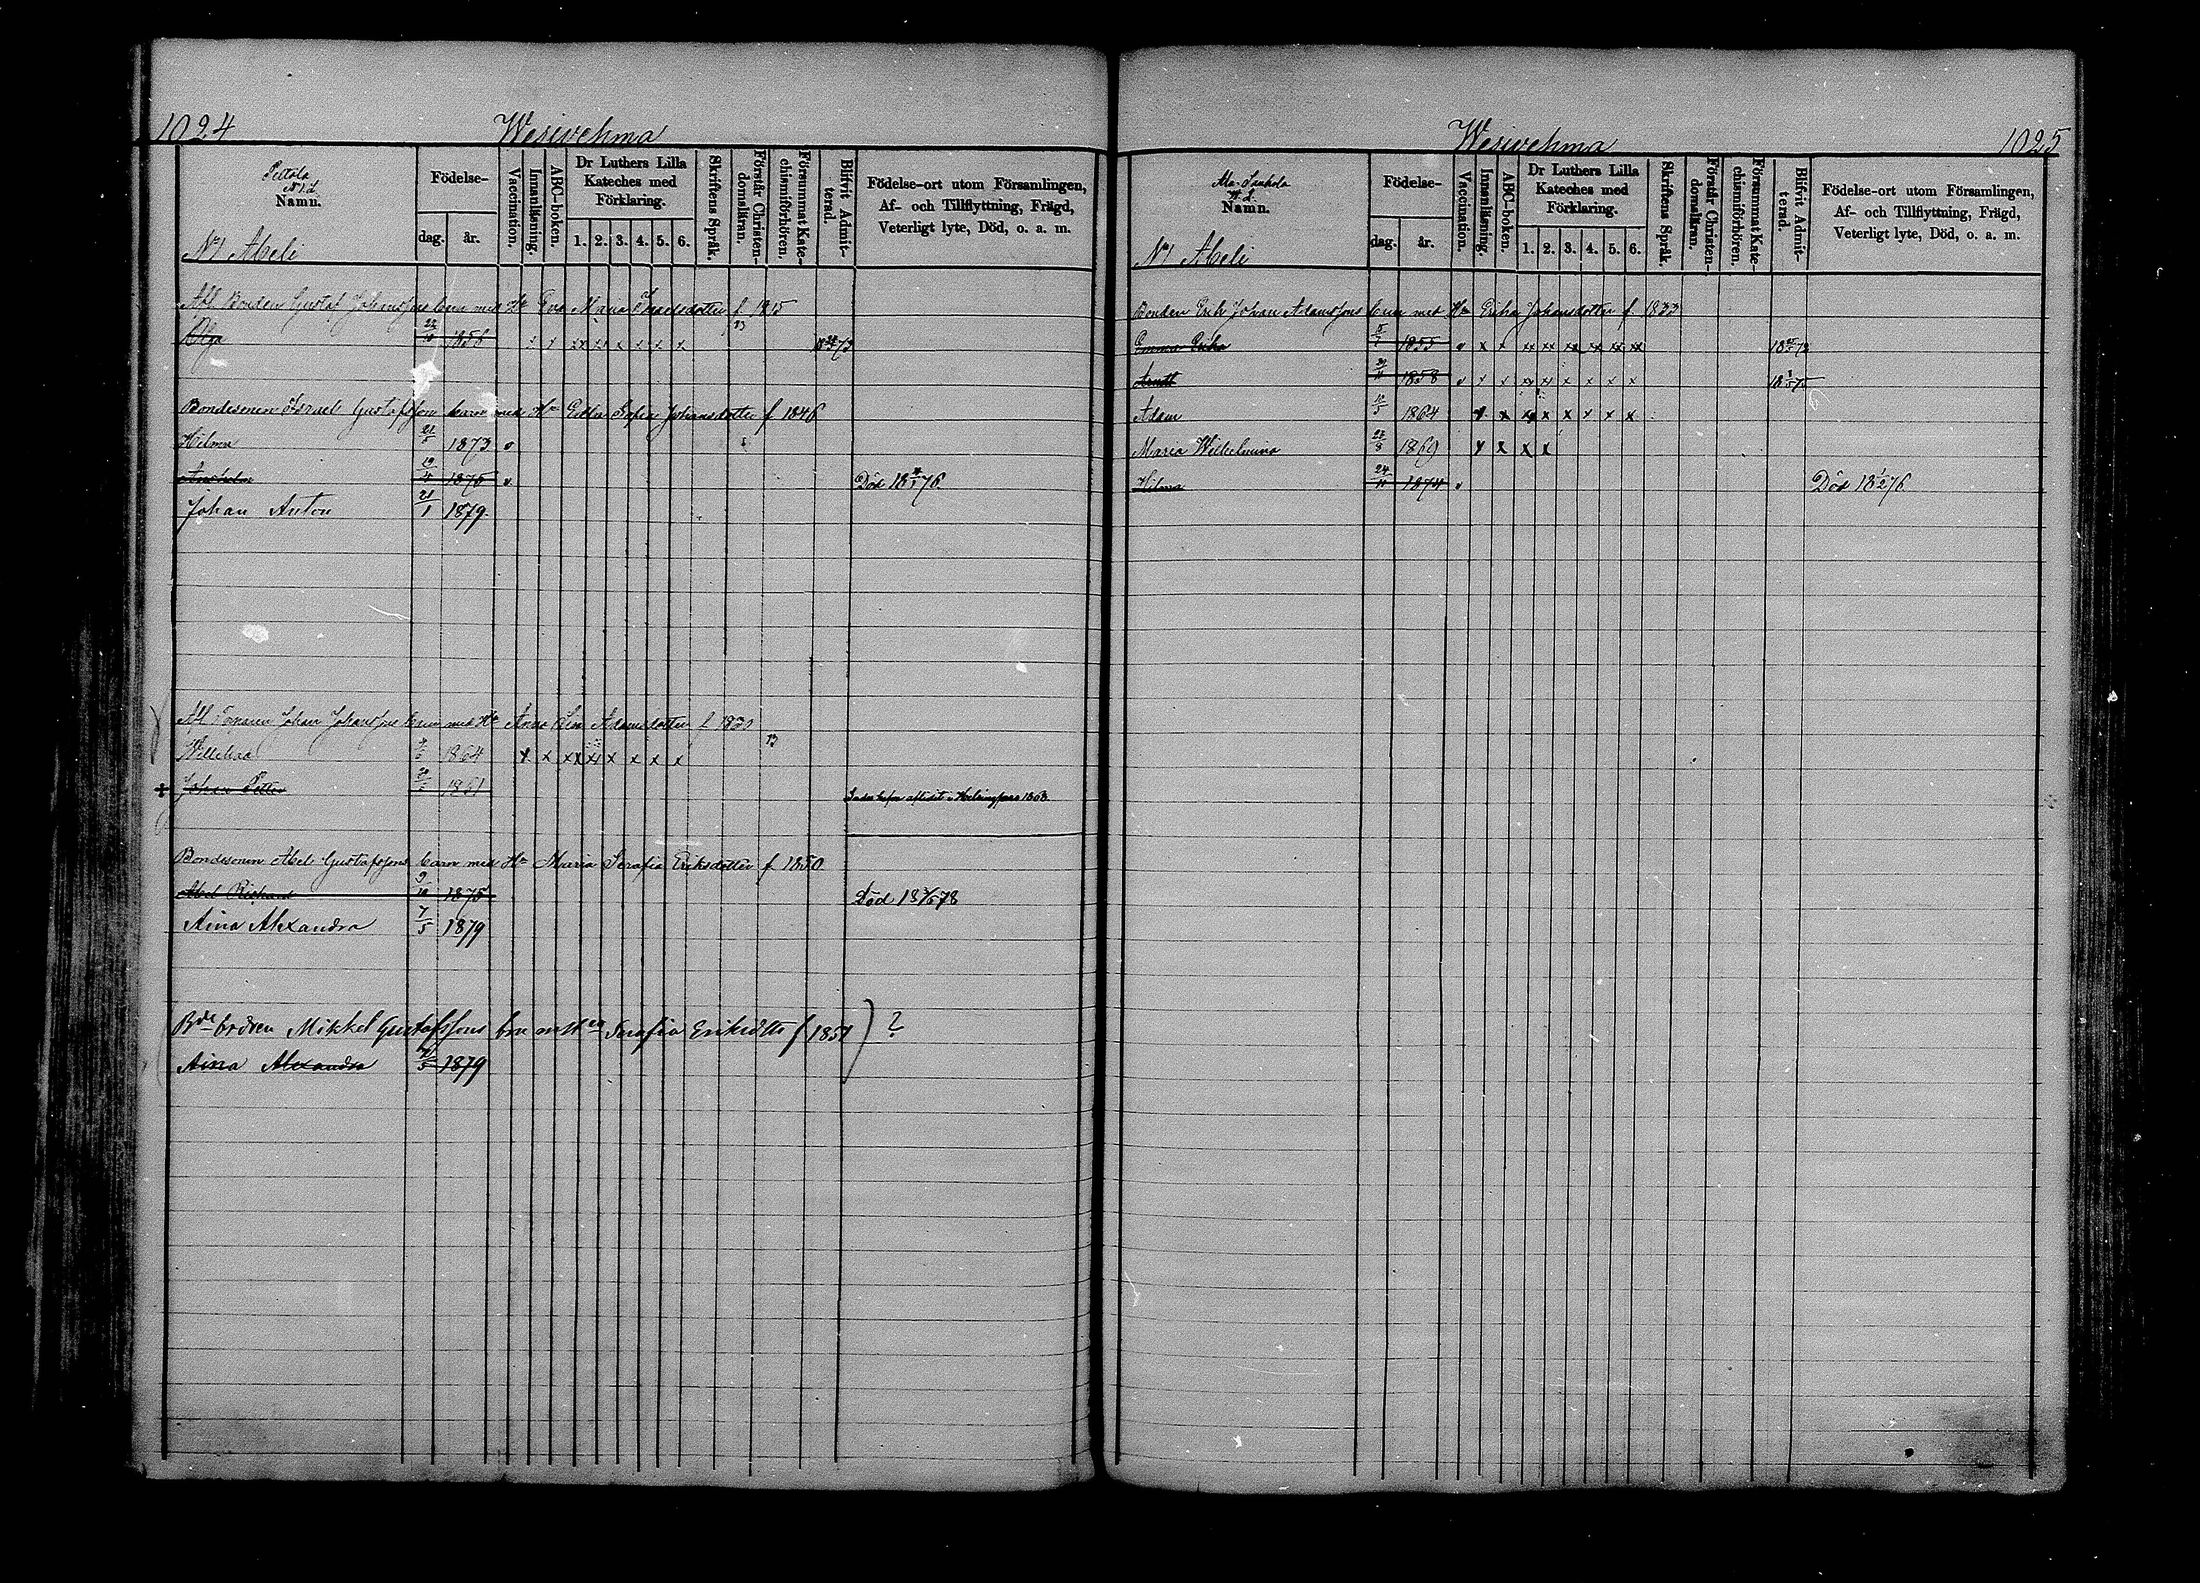 1024
Wesivehma
Pettola
Namn.
Födelse-
dag.
år.
Vaccination.
Innanläsning.
ABC-boken.
Dr Luthers Lilla
Kateches med
Förklaring.
1. 2. 3. 4. 5. 6.
Skriftens Språk.
Förstår Christen-
domsläran.
Försummat Kate-
chismiförhören.
Blifvit Admit-
terad.
Födelse-ort utom Församlingen,
Af- och Tillflyttning, Frägd,
Veterligt lyte, Död, o. a. m.
No 1 Abeli
Afl. Bonden Gustaf Johanssons barn med Hu Eva Maria Israelsdotter f 1815
Olga 1856 x x xx xx x x x x
Bondesonen Israel Gustafsson barn med Hu Edla Sofia Johansdotter f 1846
Hilma 1873 v
19/4 1875 v Död 76
Johan Anton 21/1 1879
Afl. Johan Johanssons barn med Hu Anna Lisa Adamsdotter f
1864 x x xx xx x x x x
Johan Petter 1861 Helsingfors 1868
Bondesonen Abel Gustafssons barn med Hu Maria Serafia Eriksdotter f 1850
Abel Richard 9/10 1875 Död 78
Aina Alexandra 7/5 1879
Bde brodren Mikkel Gustafssons brn m Hu Serafia Eriksdtr f 1851 ) ?
Aina Alexandra 7/5 1879
1025
Wesivehma
Ala-Sankola
Namn.
Födelse-
dag.
år.
Vaccination.
Innanläsning.
ABC-boken.
Dr Luthers Lilla
Kateches med
Förklaring.
1. 2. 3. 4. 5. 6.
Skriftens Språk.
Förstår Christen-
domsläran.
Försummat Kate-
chismiförhören.
Blifvit Admit-
terad.
Födelse-ort utom Församlingen,
Af- och Tillflyttning, Frägd,
Veterligt lyte, Död, o. a. m.
No 1 Abeli
Bonden Erik Johan Adamssons barn med Hu Erika Johansdotter f 1833
Emma Erika 1855 v x x xx xx xx xx xx xx
1858 v x x xx xx x x x x
Adam 1864 x x xx x x x x x
Maria Wilhelmina 1869 x x x x
Hilma 1874 v Död 18 1/2 76